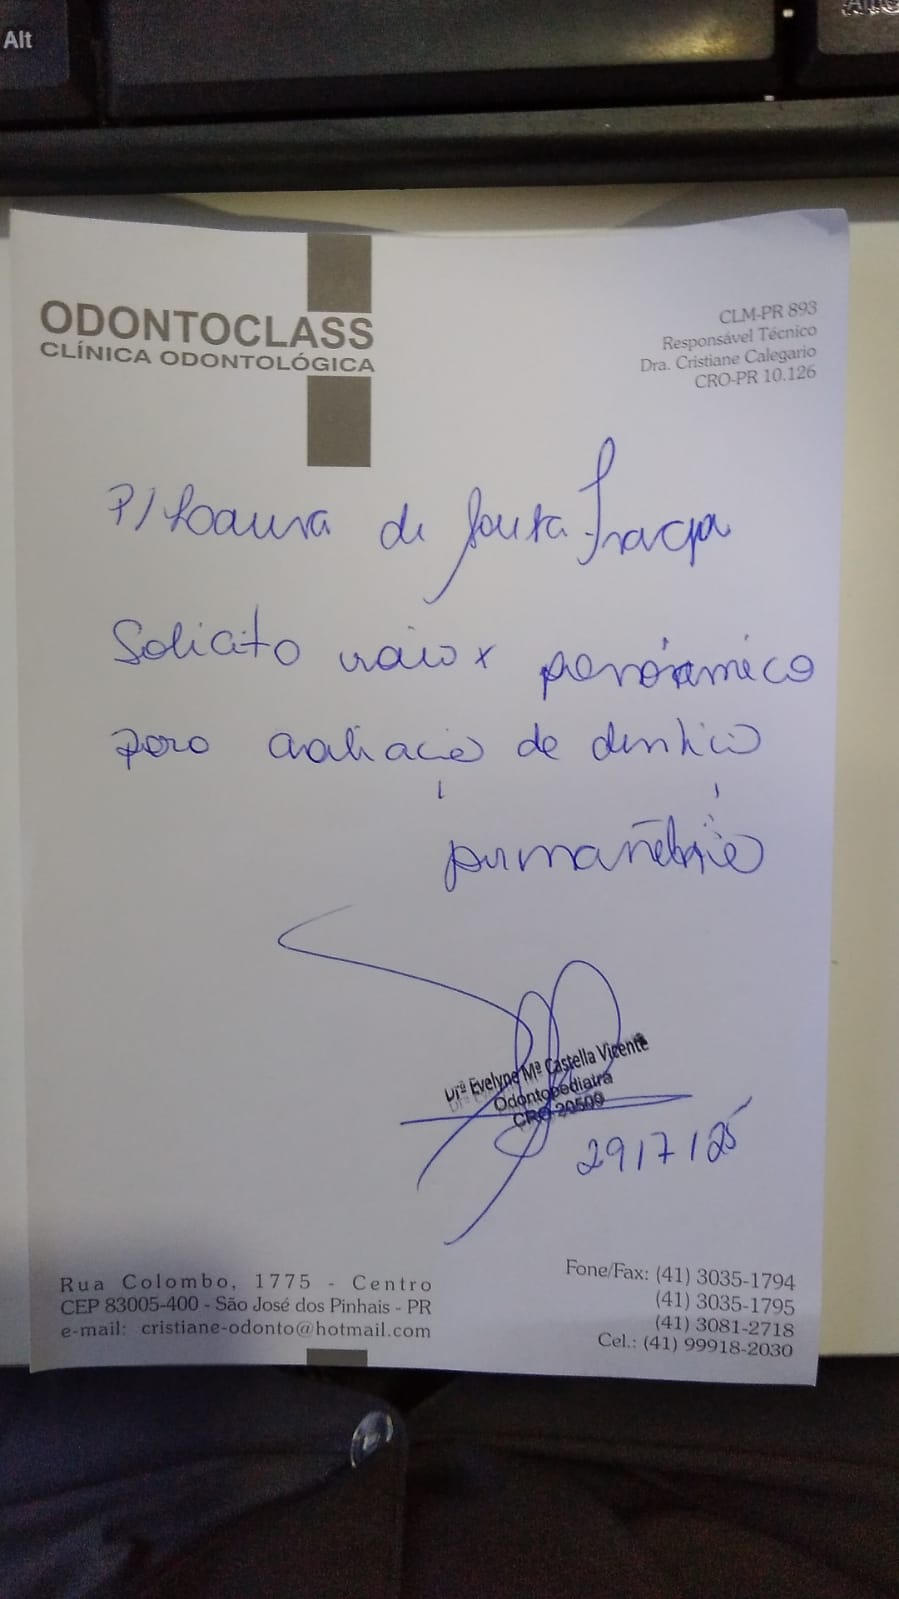 Alt
ODONTOCLASS
CLÍNICA ODONTOLÓGICA
CLM-PR 893
Responsável Técnico
Dra. Cristiane Calegario
CRO-PR 10.126
P/ Laura de Souza
Solicito raio x panorâmico
para avaliação de dentição
permanente
Drª Evelyne Mª Castella Vicente
Odontopediatra
CRO 20509
29/7/25
Rua Colombo, 1775 - Centro
CEP 83005-400 - São José dos Pinhais - PR
e-mail: cristiane-odonto@hotmail.com
Fone/Fax: (41) 3035-1794
(41) 3035-1795
(41) 3081-2718
Cel.: (41) 99918-2030